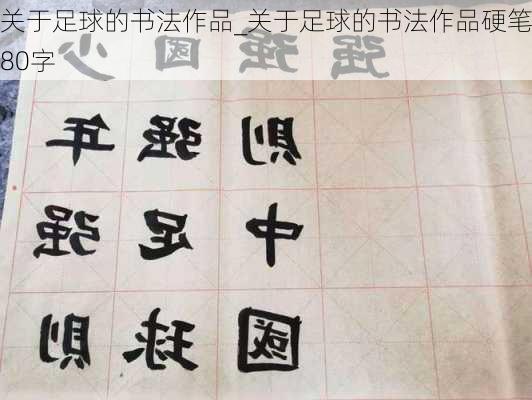 关于足球的书法作品_关于足球的书法作品硬笔
80字
少年强則
國强足球
强則中國
强